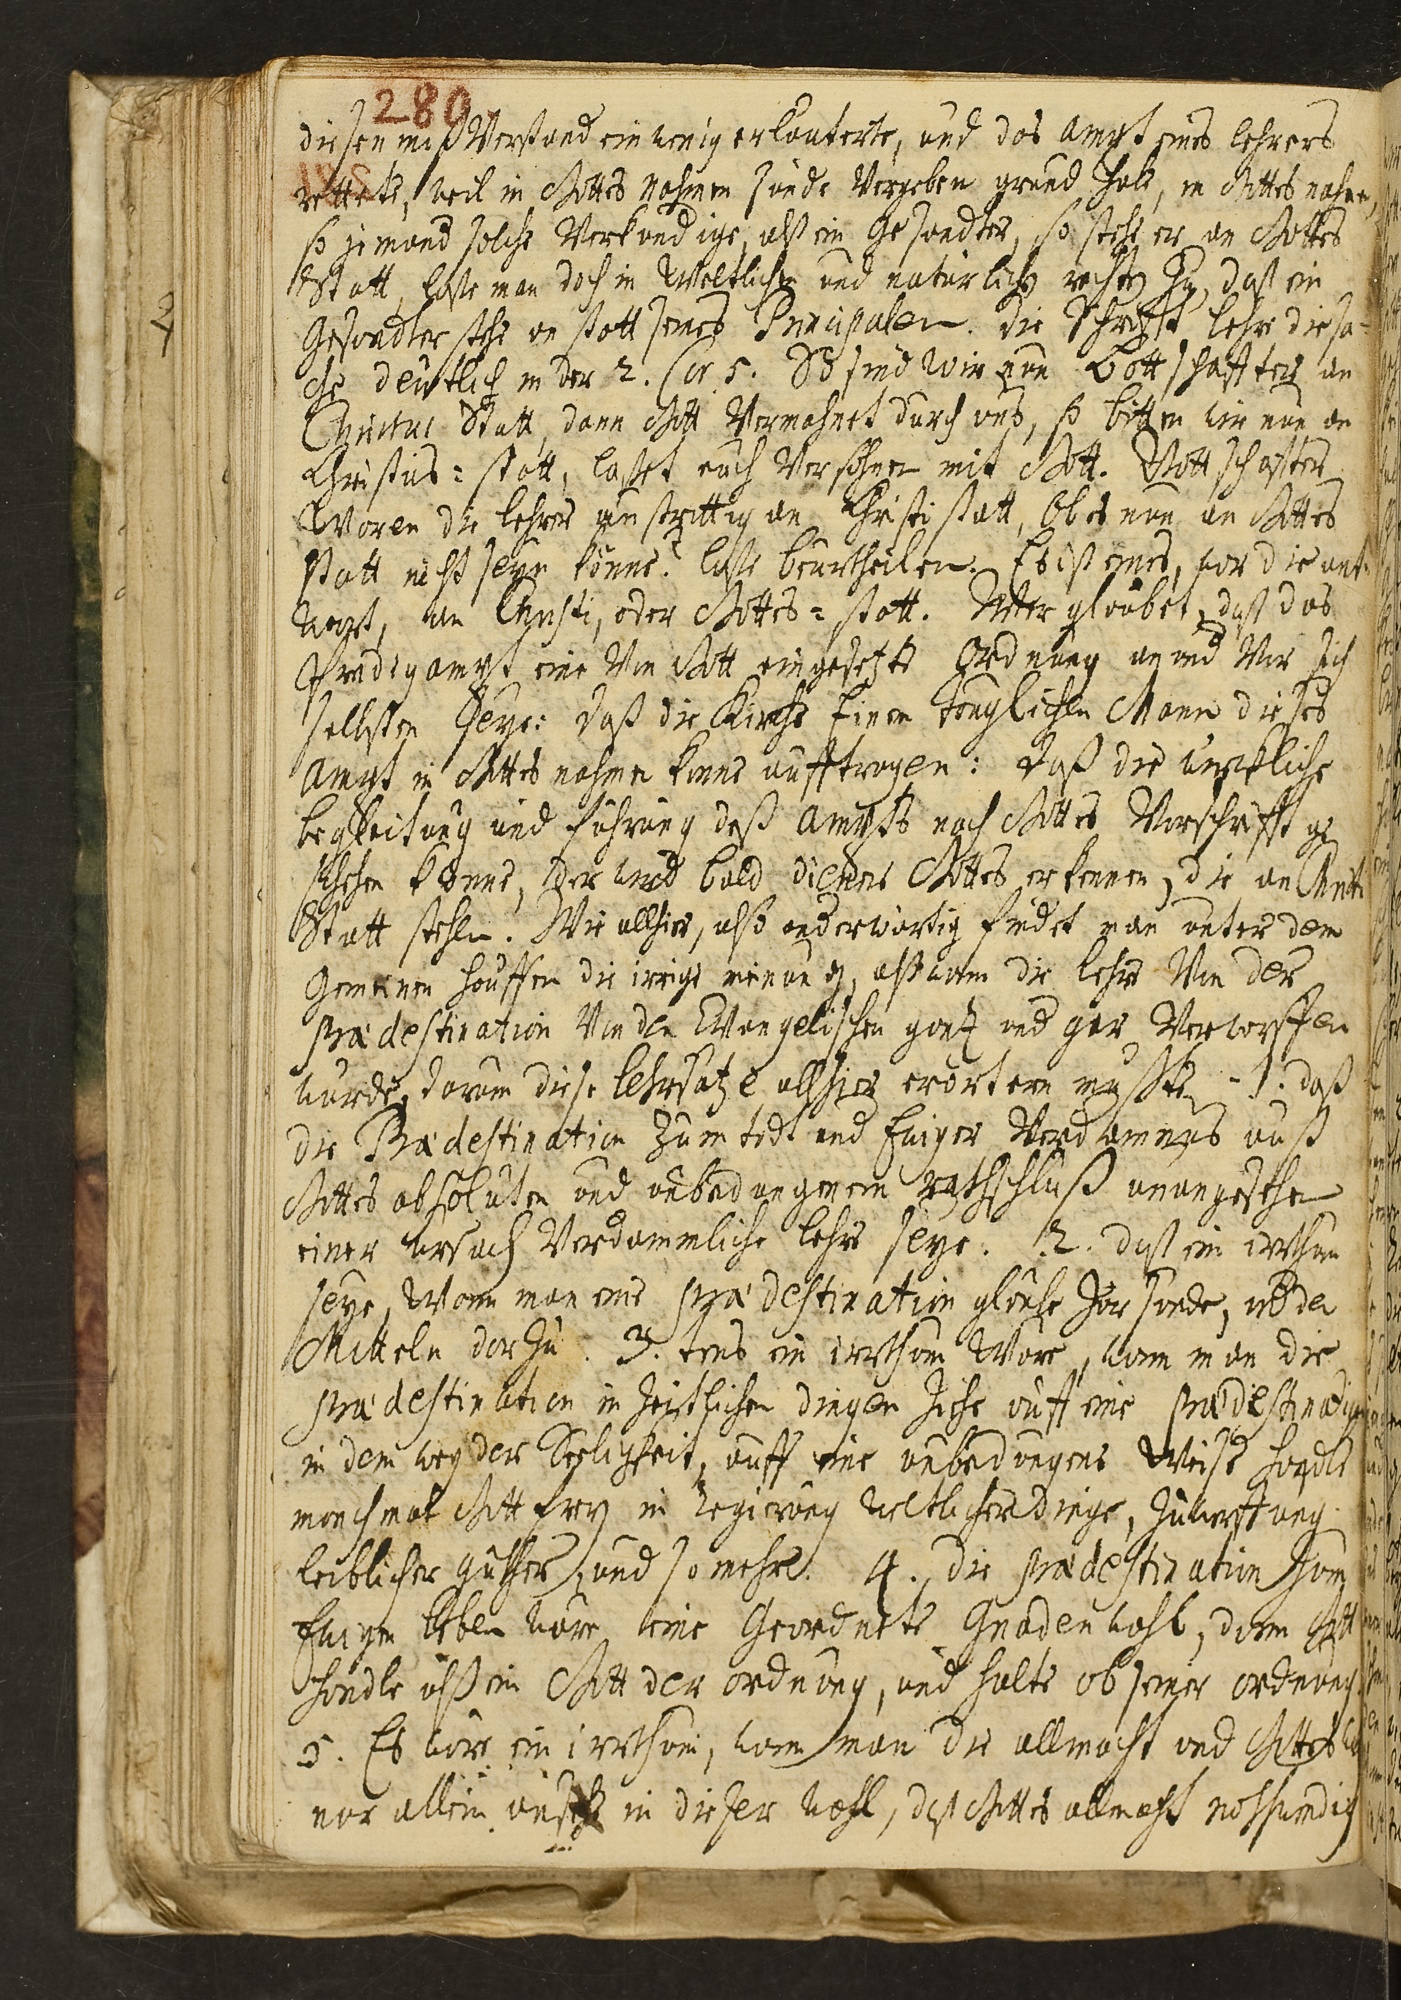 280
diesen miß Verstand ein wenig erlauterte, und das ampt eines lehrers
rettete, weil in Gottes nahmen sünde Vergeben grund habe, in Gottes nahmen,
so jemand solche Verkündige, alß ein Gesandter, so stehe er an Gottes
Statt, laße man doch in Weltlichen und natürlichen rechten zu, daß ein
Gesandter stehe an statt seines Principalen. die Schrifft lehre diesa-
che deutlich in der 2. Cor. 5. So sind wir nun Bottschaffter an
Christus Statt, dann Gott Vermahnet durch uns, so bitten wir nun an
Christus=statt, laßet euch Versöhnen mit Gott. Bottschaffter
Waren die lehrer unstrittig an Christi statt, Ob es nun an Gottes
statt nicht seyn könne? laße beurtheilen. Es ist eines, war die ant-
wort, an Christi, oder Gottes=statt. Wer glaubet, daß das
Predigampt eine Von Gott eingesetzte Ordnung an und Vor sich
selbsten seye: daß die Kirche Einem tauglichen Mann dieses
Ampt in Gottes nahmen könne aufftragen: daß die würckliche
begleitung und führung deß ampts nach Gottes Vorschrifft ge
schehen könne, der wird bald diener Gottes erkennen, die an Christi
Statt stehen. Wie allhier, alß anderwärtig findet man unter dem
Gemeinen hauffen die irrige meinung, alß wann die lehre Von der
prædestination Von den Evangelischen gantz und gar Verworffen
wurde, darum diese lehrsatze allhier erörtern mußte. 1. daß
die Prædestination zum todt und Ewiger Verdamnus auß
Gottes absoluten und unbedungenem rathschluß unangesehen
einer ursach Verdammliche lehre seye. 2. daß ein irrthum
seye, Wann man eine prædestination glaube zur sünde, und den
Mitteln darzu. 3.tens ein irrthum Wäre, wann man die
prædestination in zeitlichen dingen ziehe auff eine prædestination
in dem weg der Seeligkeit, auff eine unbedungene Weise handle
manchmal Gott frey in regierung weltlicher dinge,
leiblicher güther, und so mehr. 4. die prædestination zum
Ewigen leben wäre eine Geordnete Gnadenwahl, dann Gott
handle alß ein Gott der ordnung, und halte ob seiner ordnung.
5. Es wäre ein irrthum, wann man die allmacht und Gottes
nur allein ansehe in dieser wahl, daß Gottes allmacht